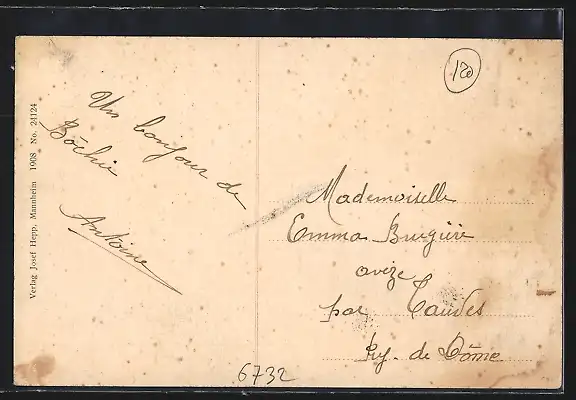 Verlag Josef Hepp, Mannheim 1908 No. 24124
Un bonjour de
Bôchie
Antoine
120
Mademoiselle
Emma Burgière
avèze
par Tauves
Puy-de Dôme
6732